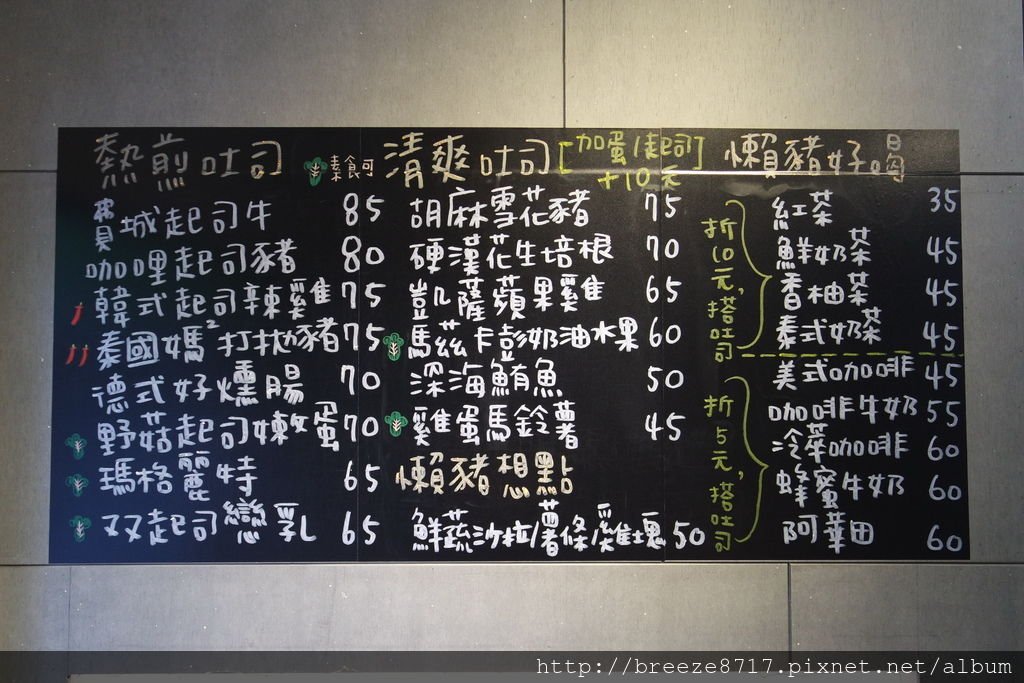 熱煎吐司
素食可
費城起司牛 85
咖哩起司豬 80
韓式起司辣雞 75
泰國媽²打拋豬 75
德式好燻腸 70
野菇起司嫩蛋 70
瑪格麗特 65
双起司戀乳 65
清爽吐司 [加蛋/起司]
+10元
胡麻雪花豬 75
硬漢花生培根 70
凱薩蘋果雞 65
馬茲卡彭奶油水果 60
深海鮪魚 50
雞蛋馬鈴薯 45
懶豬想點
鮮蔬沙拉/薯條/雞塊 50
懶豬好喝
折10元，搭吐司
紅茶 35
鮮奶茶 45
香柚茶 45
泰式奶茶 45
折5元，搭吐司
美式咖啡 45
咖啡牛奶 55
冷萃咖啡 60
蜂蜜牛奶 60
阿華田 60
http://breeze8717.pixnet.net/album